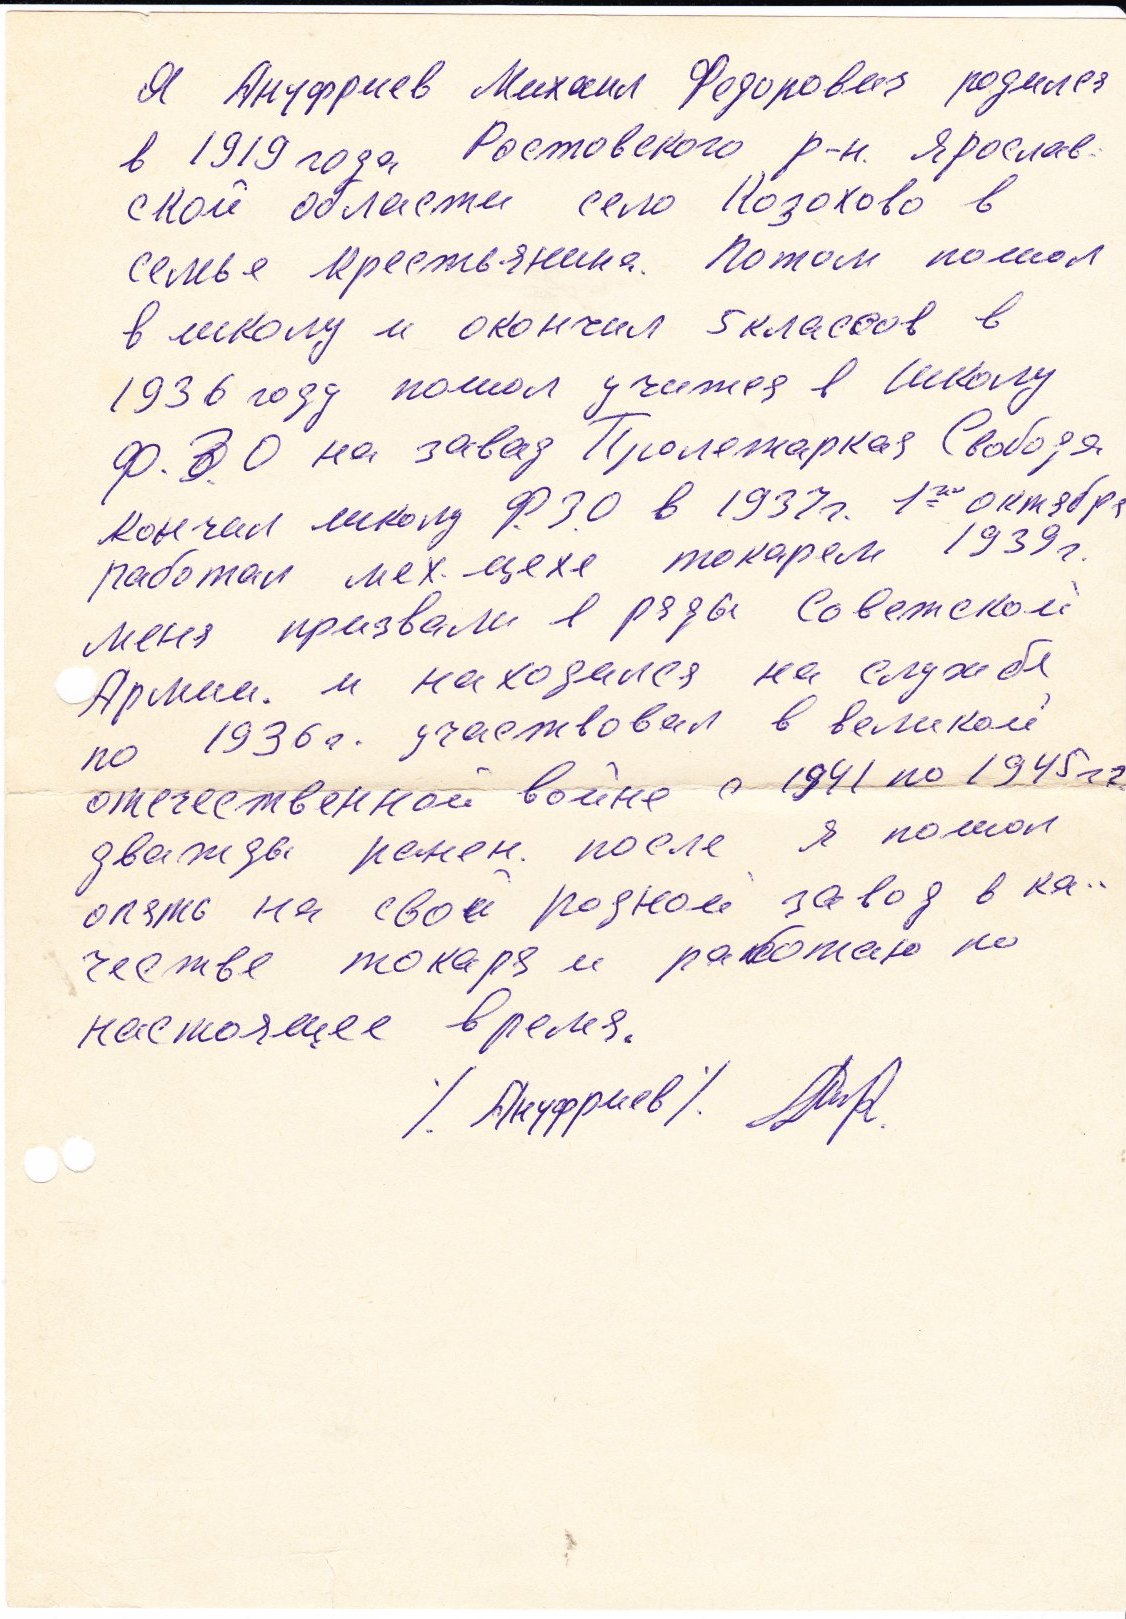 Я Ануфриев Михаил Федорович родился
в 1919 года Ростовского р-н. Ярослав-
ской области село Козохово в
семье крестьянина. Потом пошол
в школу и окончил 5 классов в
1936 году пошол учится в школу
Ф.З.О на завад Пролетаркая Свобода
кончил школу Ф.З.О в 1937г. 1го октября
работал мех. цехе токарем 1939г.
меня призвали в ряды Советской
Армии. и находился на службе
по 1936г. участвовал в великой
отечественной войне с 1941 по 1945гг
дважды ранен. после я пошол
опять на свой родной завод в ка-
честве токаря и работаю по
настоящее время.
/. Ануфриев /.